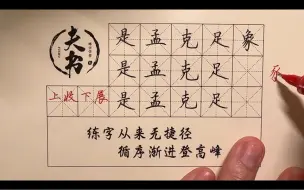 夫书
是孟克足象
是孟克足
上歧下展是孟克足
练字从来无捷径
循序渐进登高峰